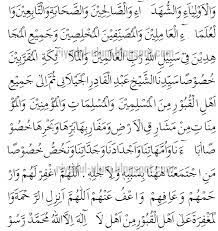 وَالْأَوْلِيَاءِ وَالشُّهَدَاءِ وَالصَّالِحِيْنَ وَالصَّحَابَةِ وَالتَّابِعِيْنَ وَا
لْعُلَمَاءِ الْعَامِلِيْنَ وَالْمُصَنِّفِيْنَ الْمُخْلِصِيْنَ وَجَمِيْعِ الْمُجَا
هِدِيْنَ فِيْ سَبِيْلِ اللهِ رَبِّ الْعَالَمِيْنَ وَالْمَلَائِكَةِ الْمُقَرَّبِيْنَ
خُصُوْصًا سَيِّدِنَا الشَّيْخِ عَبْدِ الْقَادِرِ الْجَيْلَانِي ثُمَّ اِلَى جَمِيْعِ
اَهْلِ الْقُبُوْرِ مِنَ الْمُسْلِمِيْنَ وَالْمُسْلِمَاتِ وَالْمُؤْمِنِيْنَ وَالْمُؤْ
مِنَاتِ مِنْ مَشَارِقِ الْاَرْضِ وَمَغَارِبِهَا بَرِّهَا وَبَحْرِهَا خُصُوْصًا
اٰبَاءَنَا وَاُمَّهَاتِنَا وَاَجْدَادَنَا وَجَدَّاتِنَا وَنَخُصُّ خُصُوْصًا
مَنِ اجْتَمَعْنَا هٰهُنَا بِسَبَبِهِ وَلِاَجْلِهِ اَللّٰهُمَّ اغْفِرْ لَهُمْ وَارْ
حَمْهُمْ وَعَافِهِمْ وَاعْفُ عَنْهُمْ اَللّٰهُمَّ اَنْزِلِ الرَّحْمَةَ وَا
لْمَغْفِرَةَ عَلَى اَهْلِ الْقُبُوْرِ مِنْ اَهْلِ لَا اِلٰهَ اِلَّا اللهُ مُحَمَّدٌ رَسُوْ